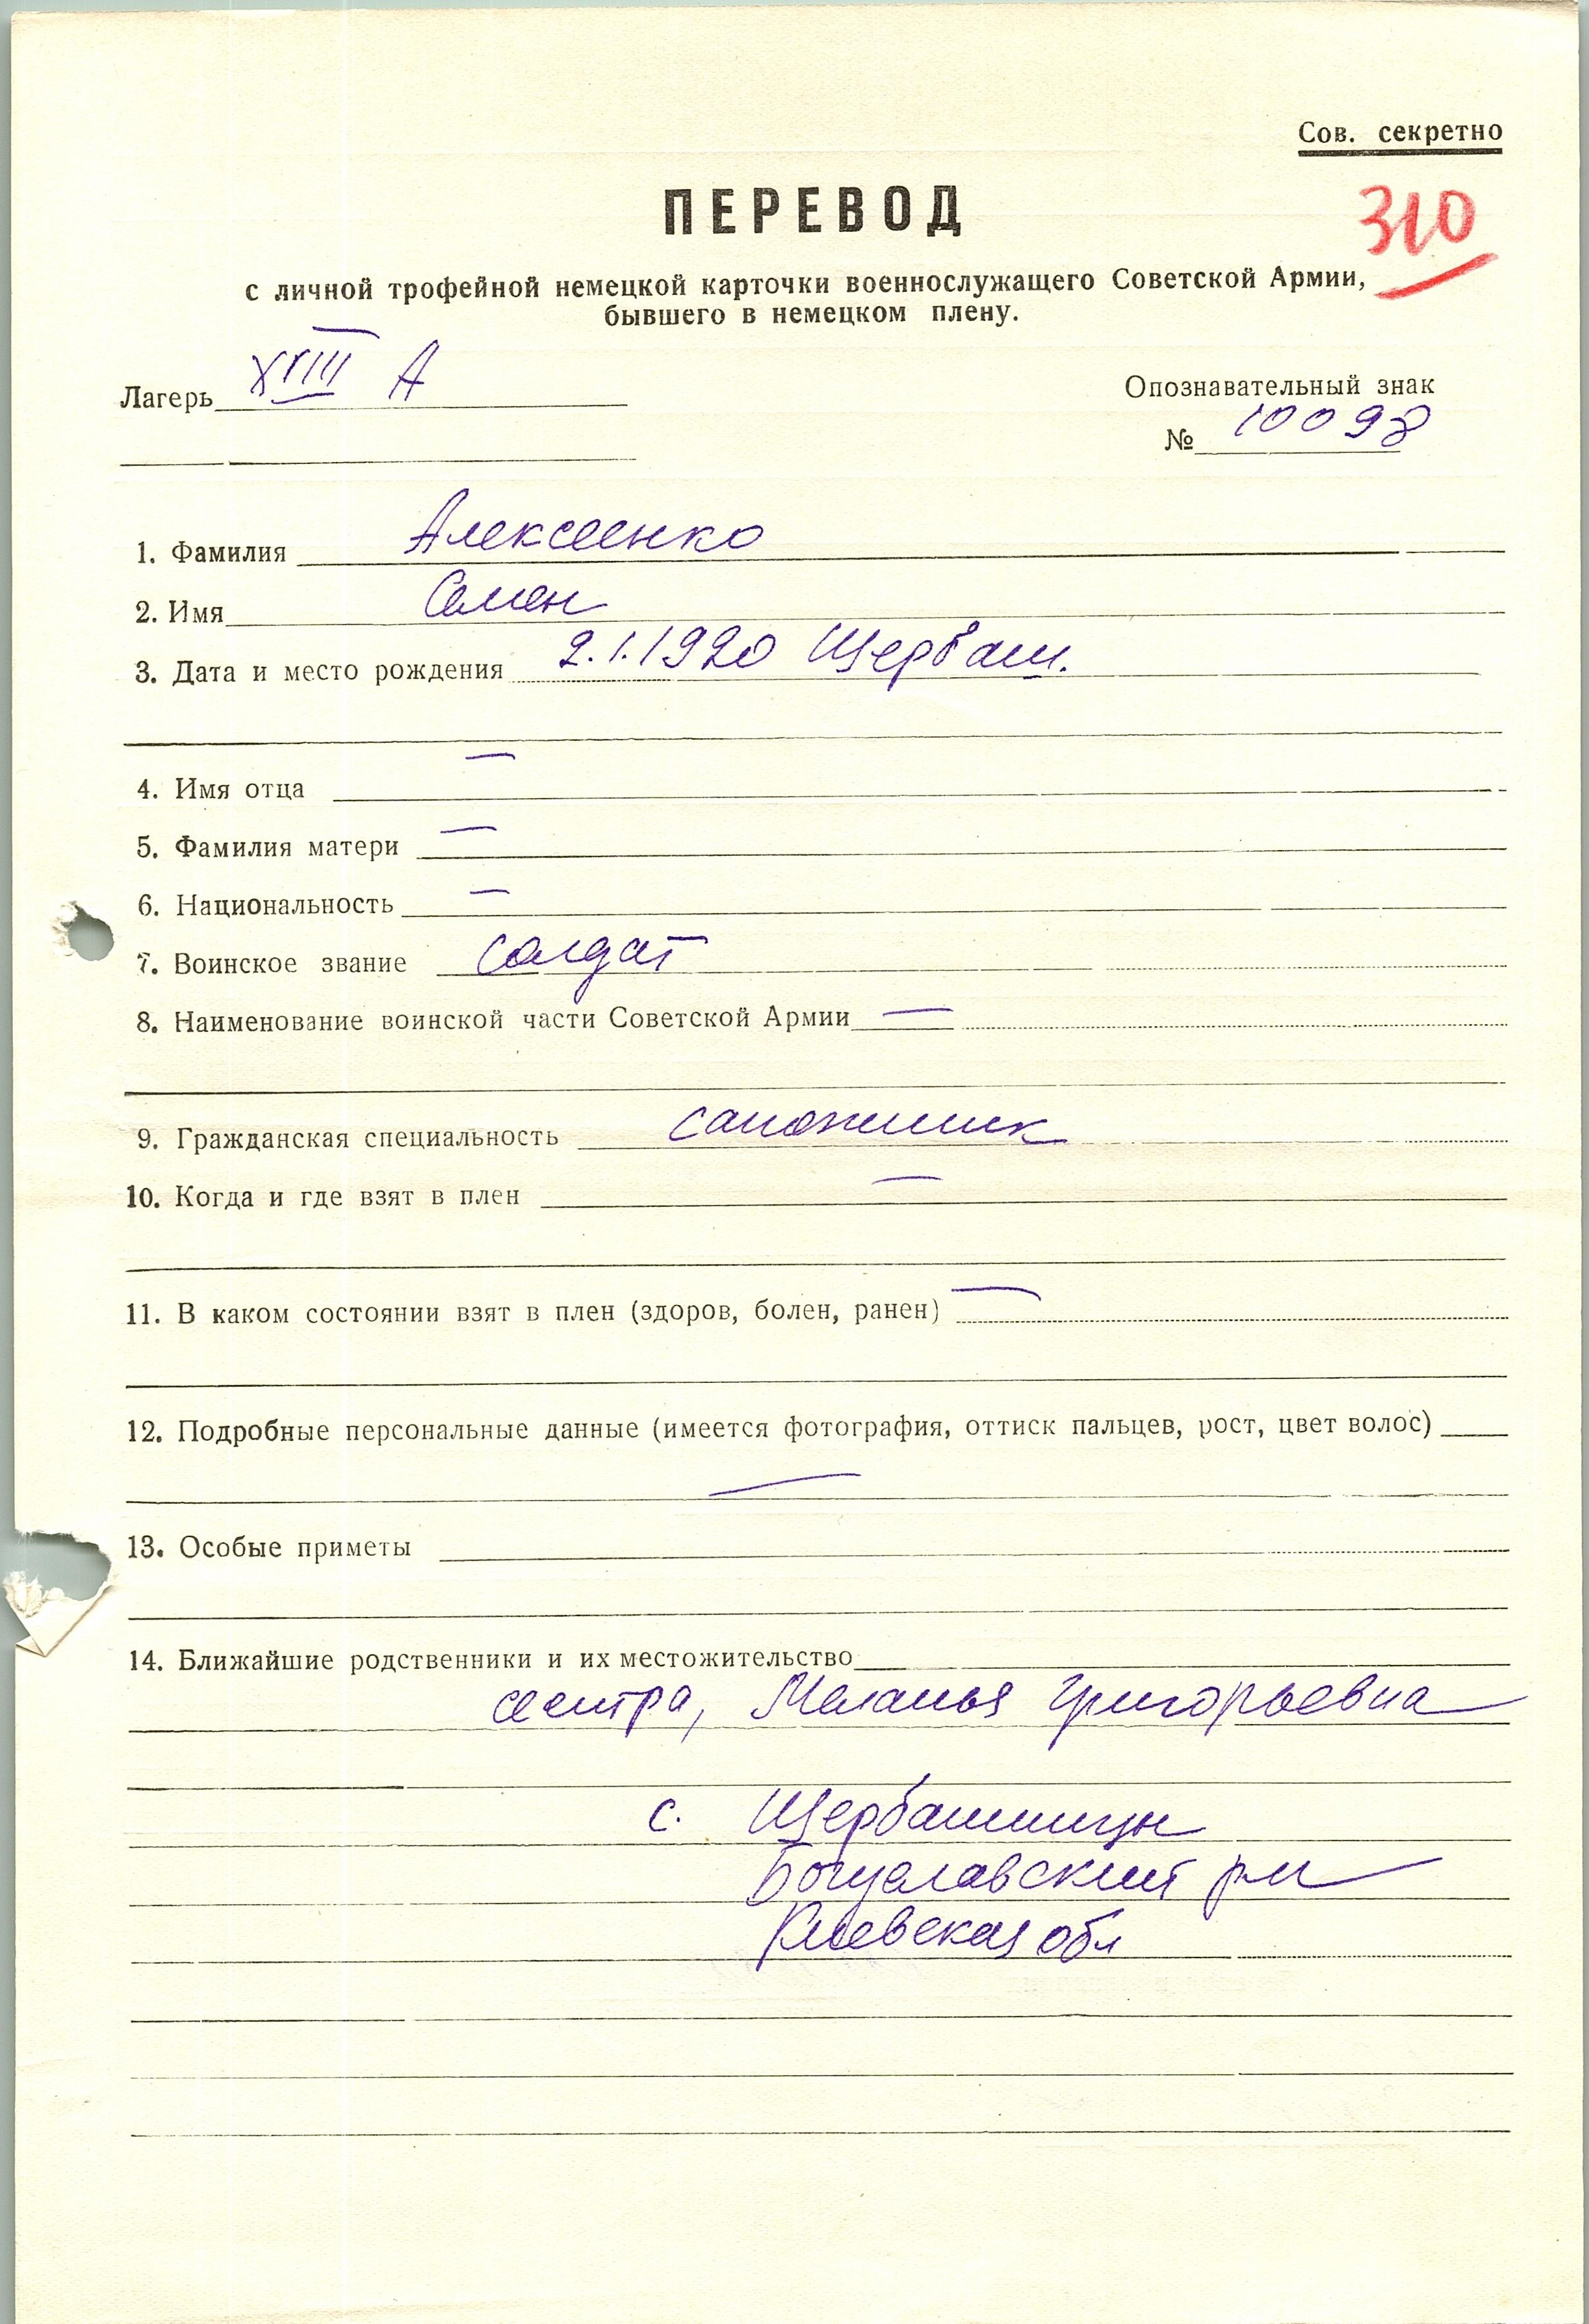 Сов. секретно
ПЕРЕВОД
310
с личной трофейной немецкой карточки военнослужащего Советской Армии,
бывшего в немецком плену.
Лагерь XVIII А
Опознавательный знак
№ 10098
1. Фамилия Алексеенко
2. Имя Семен
3. Дата и место рождения 2.1.1920 Щербаш.
4. Имя отца —
5. Фамилия матери —
6. Национальность —
7. Воинское звание солдат
8. Наименование воинской части Советской Армии —
9. Гражданская специальность сапожник
10. Когда и где взят в плен —
11. В каком состоянии взят в плен (здоров, болен, ранен) —
12. Подробные персональные данные (имеется фотография, оттиск пальцев, рост, цвет волос)
—
13. Особые приметы
14. Ближайшие родственники и их местожительство
сестра, Меланья Григорьевна
с. Щербашинцы
Богуславский р-н
Киевская обл